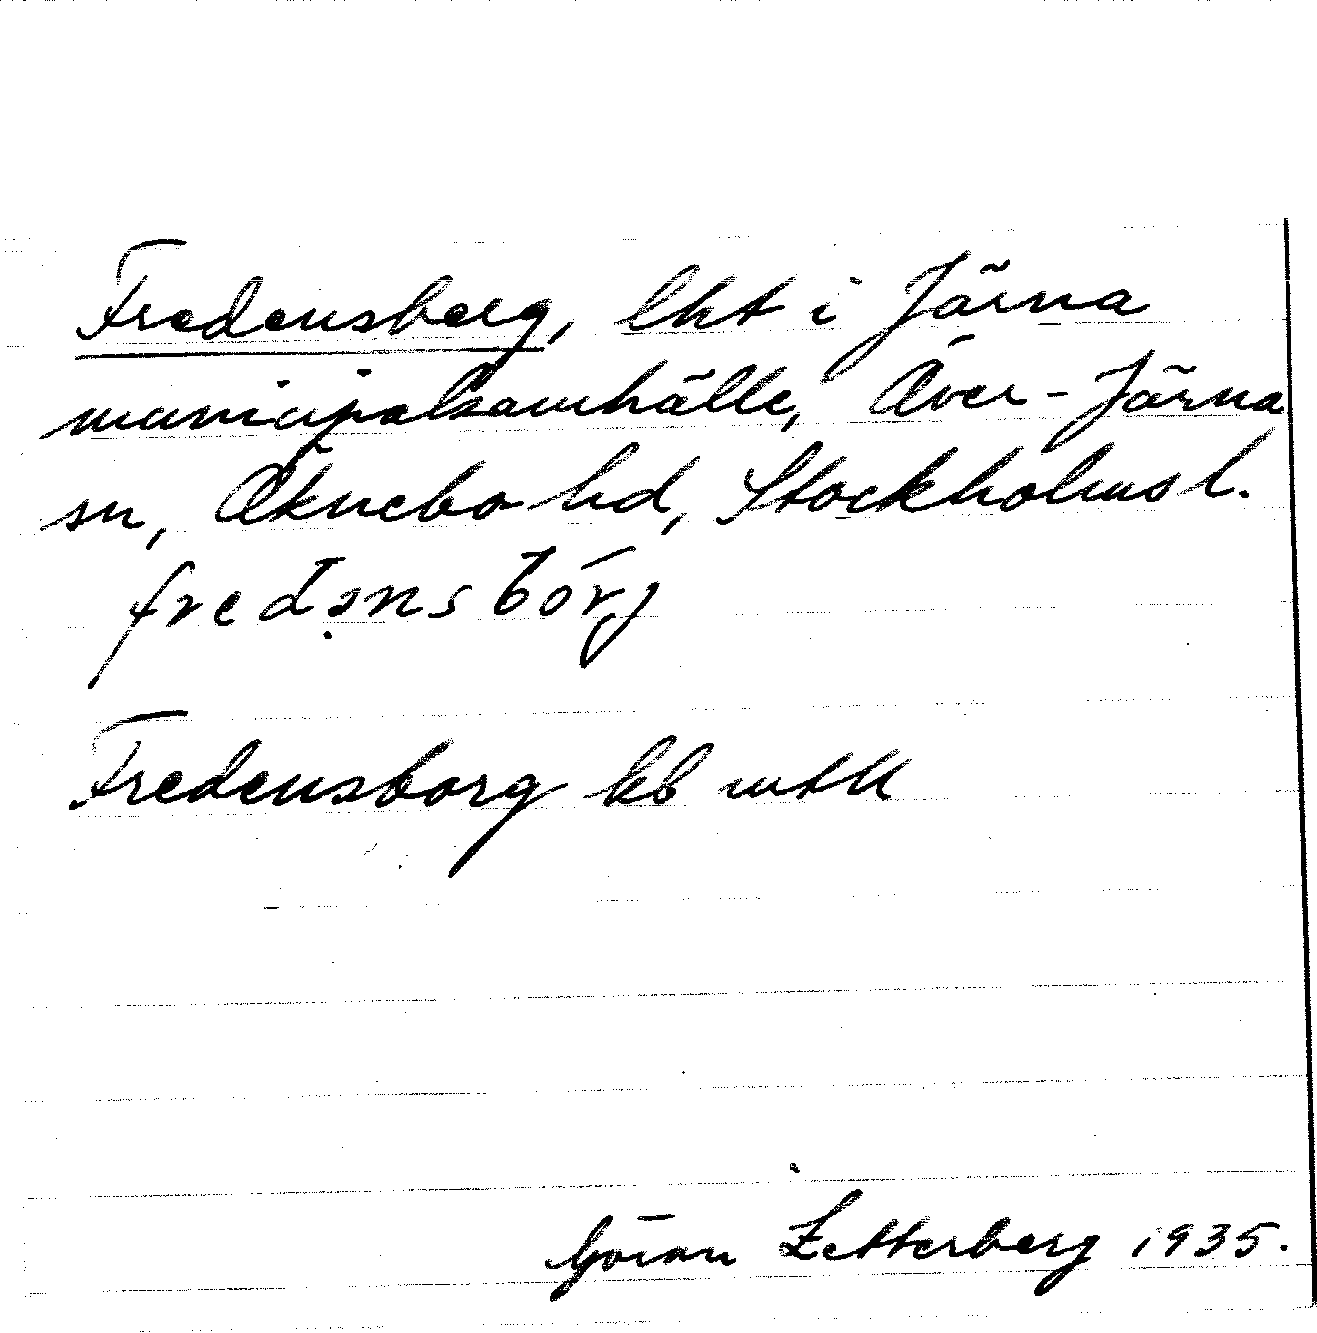 Fredensberg, lht i Järna
municipalsamhälle, Över-Järna
sn, Öknebo hd, Stockholms l.
fredənsbórj
Fredensborg kb mtll
Göran Zetterberg 1935.